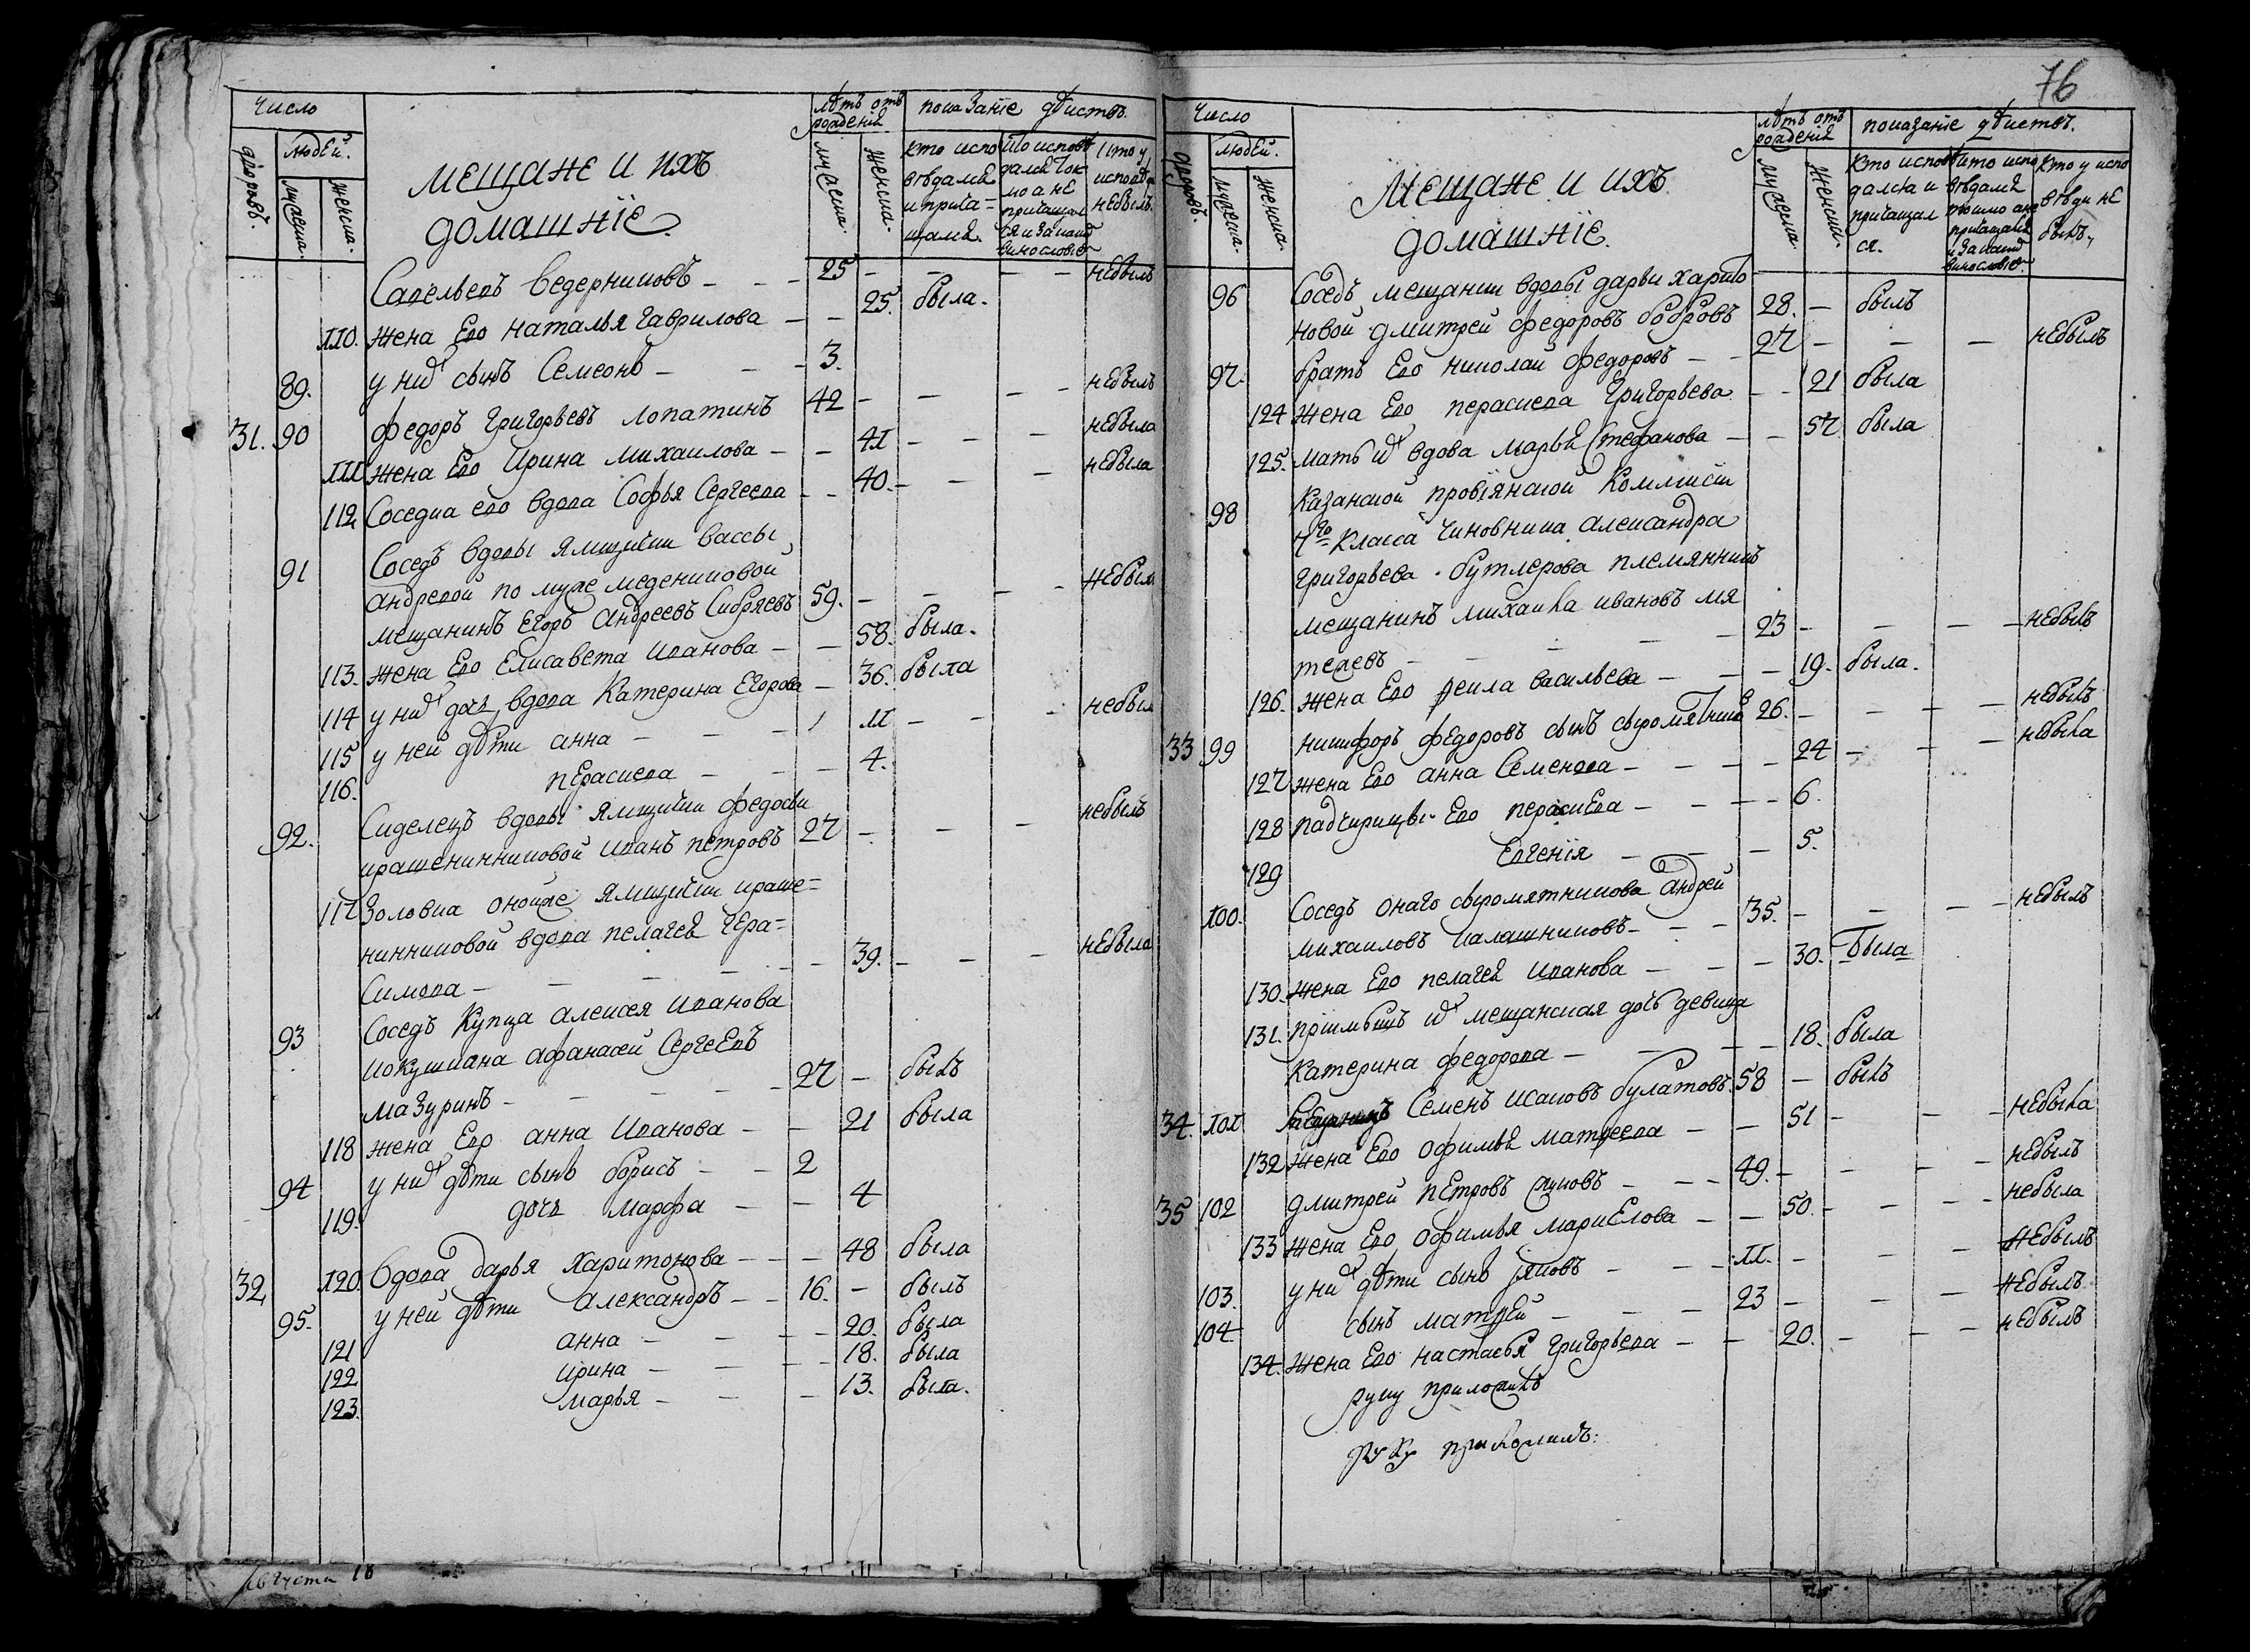 76
Число
лѣтъ отъ рожденія
показаніе дѣиствъ.
дворовъ.
людей.
мужеска.
женска.
мещане и ихъ
домашніе
мужеска.
женска.
кто испо
вѣдался
и прича=
щался.
кто исповѣ
дался ток
мо а не
причащал
ся и за какѣ
винословіе
кто у
исповѣди
небылъ.
Савельевъ ведерниковъ – – – 25 – – – – небылъ
110. жена Его наталья гаврилова – – 25. была.
89. у нихъ сынъ Семеонъ – – – 3.
31. 90 федоръ григорьевъ лопатинъ 42 – – – – небылъ
111 жена Его Ирина михаилова – – 41 – – – небыла
112 Соседка его вдова Софья Сергеева – – 40. – – – небыла
91 Соседъ вдовы ямщички вассы
андревой по муже меденцовой
мещанинъ Егоръ андреевъ Сибряевъ 59. – – – – небылъ
113. жена Его Елисавета иванова – – 58. была.
114 у нихъ дочь вдова Катерина Егорова – 36. была
115 у ней дѣти анна – – – 11 – – – небыла
116. пераскева – – – 4.
92. Сиделецъ вдовы ямщички федосьи
крашенинниковой иванъ петровъ 27 – – – небылъ
117 Золовка оноиже ямщички краше=
нинниковой вдова пелагея гера=
симова – – – – – 39. – – – небыла
93 Соседъ Купца алексея иванова
кокушкина афанасеи Сергеевъ
мазуринъ – – – – 27 – былъ
118 жена Его анна иванова – – 21 была
94 у нихъ дѣти сынъ борисъ – – 2
119. дочь марфа – – 4
32, 120. вдова дарья харитонова – – – 48 была
95. у ней дѣти александръ – – 16. – былъ
121 анна – – – – 20. была
122 ирина – – – – 18. была
123. марья – – – 13. была.
августа 18
Число
лѣтъ отъ рожденія
показаніе дѣиствъ.
дворовъ.
людей.
мужеска.
женска.
Мещане и ихъ
домашніе.
мужеска.
женска.
кто исповѣ
дался и
причащал
ся.
кто испо
вѣдался
токмо а не
причащался
и за какѣ
винословіе.
кто у испо
вѣди не
былъ,
96 Соседъ мещанки вдовы дарьи харито
новой дмитреи федоровъ бобровъ 28. – былъ
97. братъ Его николаи федоровъ – – 27 – – – небылъ
124 жена Его пераскева григорьева – – 21 была
125. мать ихъ вдова марья Стефанова – – 57 была
98 Казанскои провіянскои Коммисіи
7го класса чиновника александра
григорьева бутлерова племянникъ
мещанинъ михаила ивановъ мя
телевъ – – – – 23 – – – – небылъ
126. жена Его фекла васильева – – – 19. была.
33 99 никифоръ федоровъ сынъ сыромятниковъ 26. – – – – небылъ
127 жена Его анна Семенова – – – – 24 – – – небыла
128 падчирицы Его пераскева – – – – 6.
129 Евгенія – – – 5.
100. Соседъ онаго сыромятникова андреи
михаиловъ калашниковъ – – – 35. – – – – небылъ
130. жена Его пелагея иванова – – – 30. была
131. пріимышъ ихъ мещанская дочь девица
Катерина федорова – – – – 18. была
34. 101 Семенъ исаковъ булатовъ. 58 – былъ
132 жена Его офимья матвеева – – 51 – – – небыла
35 102 дмитреи петровъ – – – 49. – – – – небылъ
133 жена Его офимья маркелова – – 50. – – – небыла
103. у нихъ дѣти сынъ яковъ – – – 11. – – – небылъ
104 сынъ матвеи – – – 23 – – – небылъ
134. жена Его настасья григорьева – – 20. – – – небылъ
руку приложилъ
руку приложилъ: